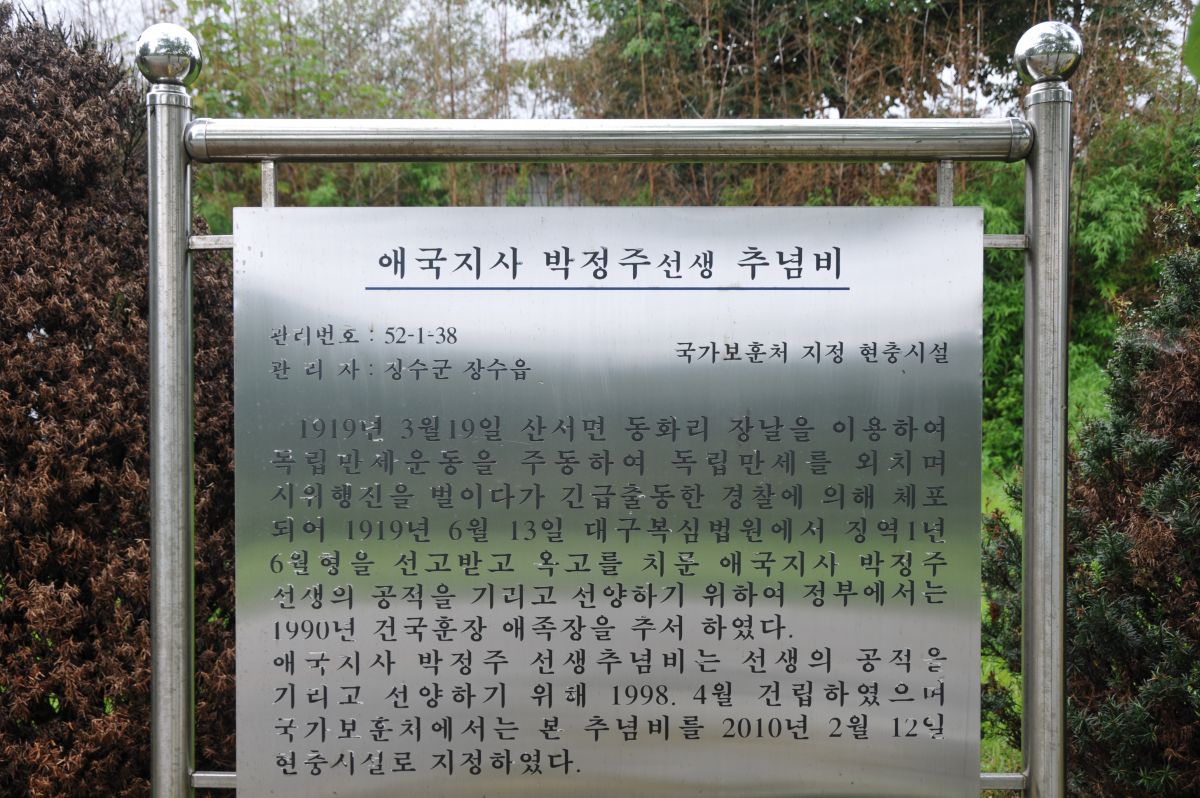 애국지사 박정주선생 추념비
관리번호 : 52-1-38
국가보훈처 지정 현충시설
관 리 자 : 장수군 장수읍
1919년 3월19일 산서면 동화리 장날을 이용하여
독립만세운동을 주동하여 독립만세를 외치며
시위행진을 벌이다가 긴급출동한 경찰에 의해 체포
되어 1919년 6월 13일 대구복심법원에서 징역1년
6월형을 선고받고 옥고를 치룬 애국지사 박정주
선생의 공적을 기리고 선양하기 위하여 정부에서는
1990년 건국훈장 애족장을 추서 하였다.
애국지사 박정주 선생추념비는 선생의 공적을
기리고 선양하기 위해 1998. 4월 건립하였으며
국가보훈처에서는 본 추념비를 2010년 2월 12일
현충시설로 지정하였다.